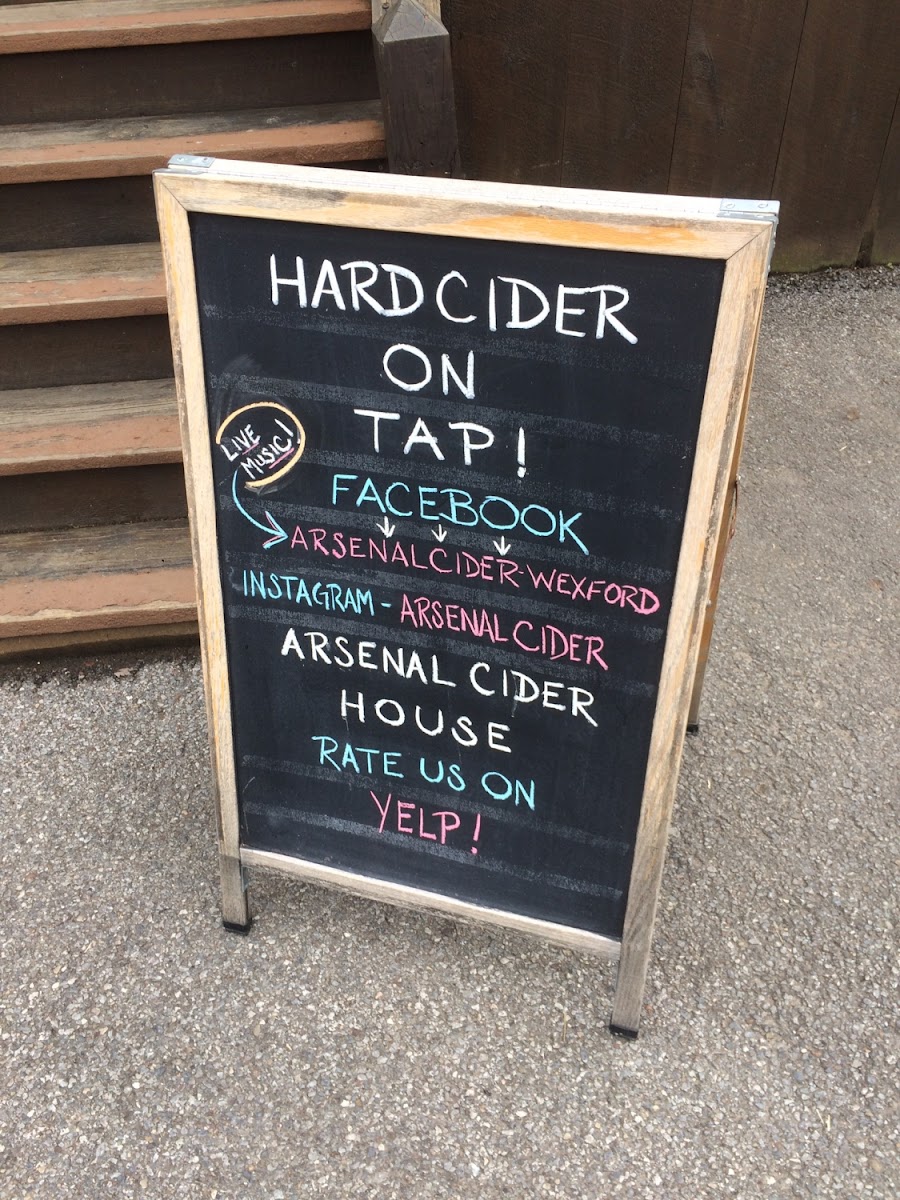 HARD CIDER
ON
TAP!
LIVE
MUSIC!
FACEBOOK
ARSENALCIDER-WEXFORD
INSTAGRAM - ARSENAL CIDER
ARSENAL CIDER
HOUSE
RATE US ON
YELP!